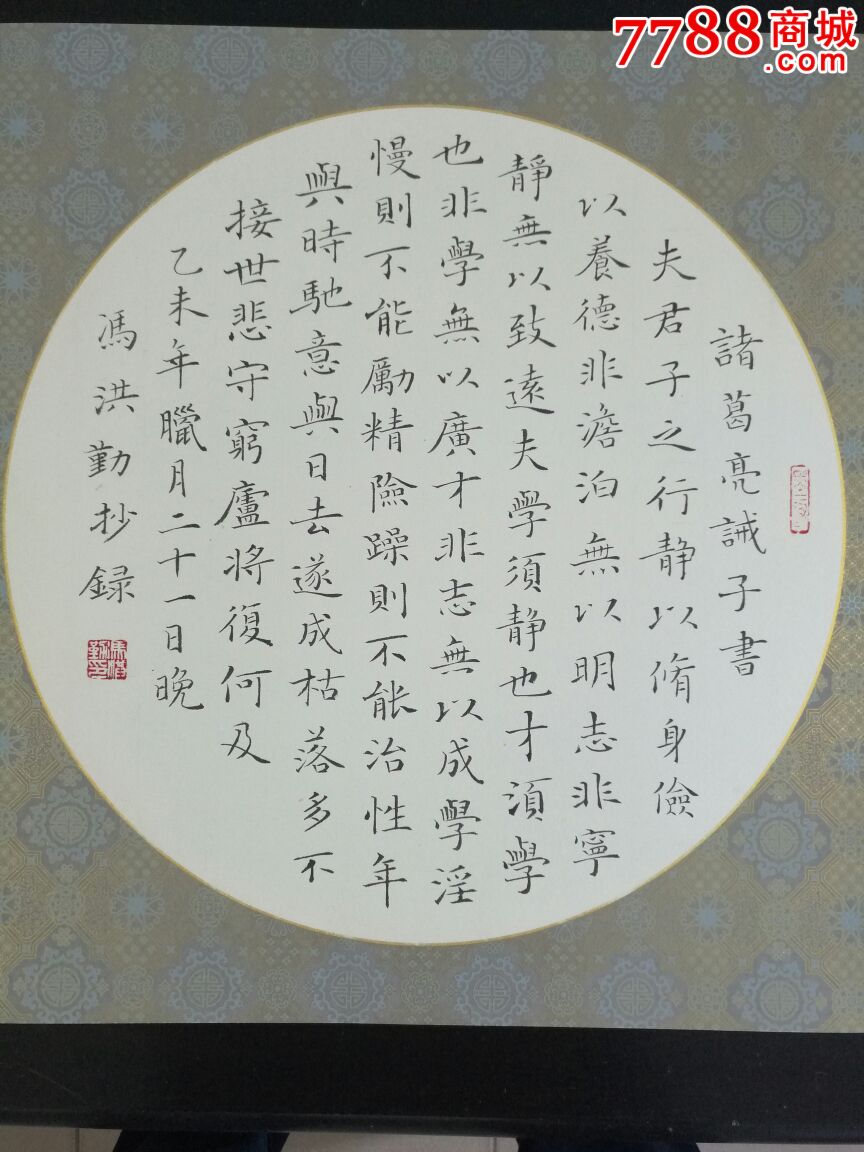 7788商城
.com
諸葛亮誡子書
夫君子之行静以脩身儉
以養德非澹泊無以明志非寧
静無以致遠夫學須静也才須學
也非學無以廣才非志無以成學淫
慢則不能勵精險躁則不能治性年
與時馳意與日去遂成枯落多不
接世悲守窮廬將復何及
乙未年臘月二十一日晚
馮洪勤抄録